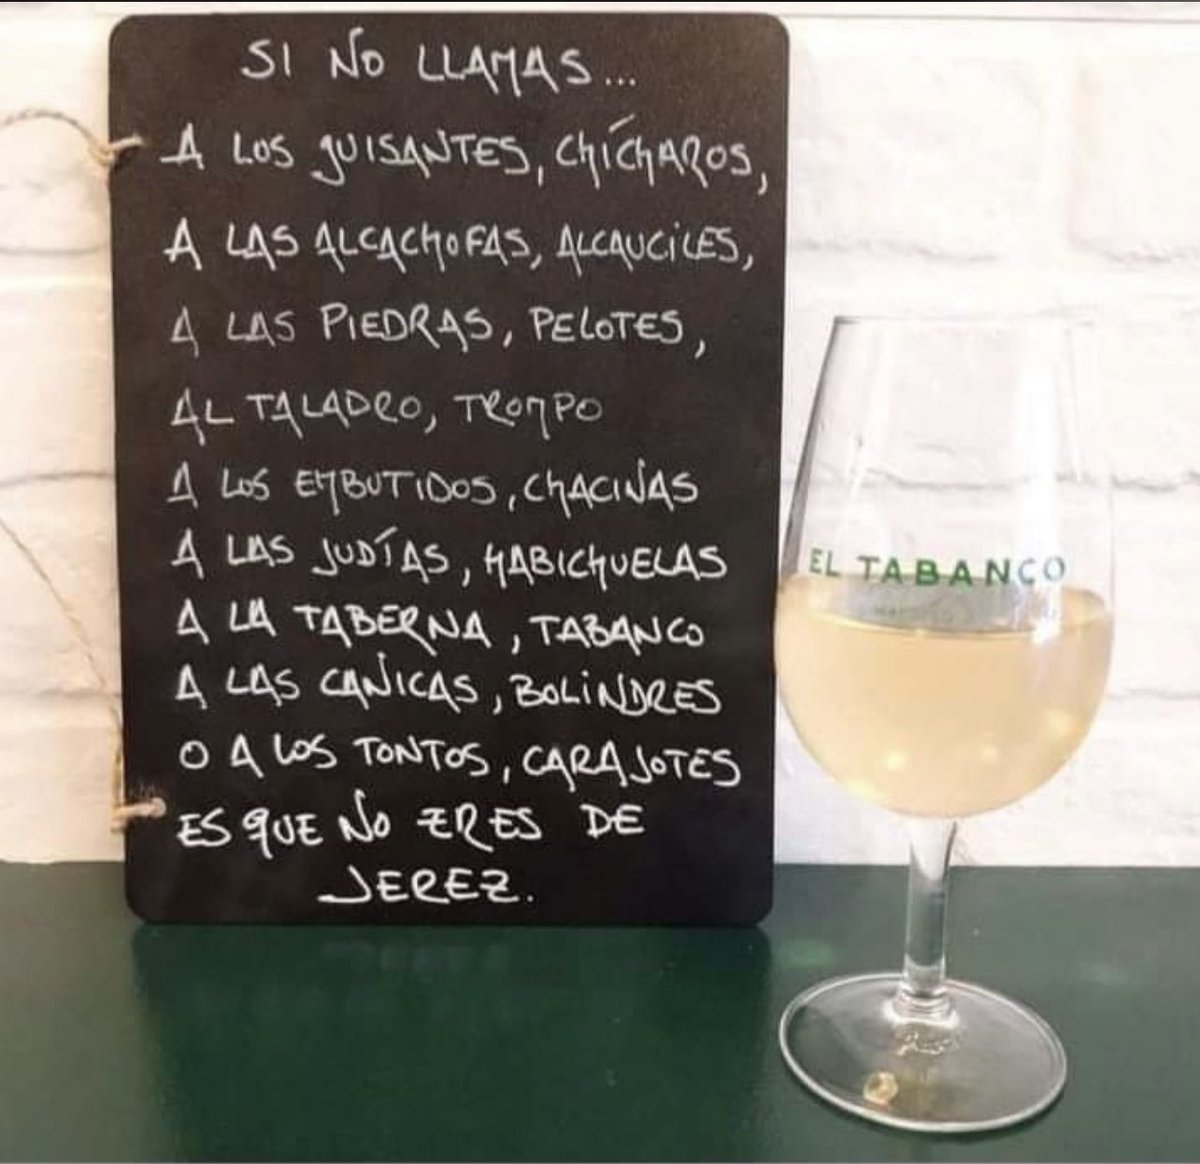 SI NO LLAMAS...
A LOS GUISANTES, CHÍCHAROS,
A LAS ALCACHOFAS, ALCAUCILES,
A LAS PIEDRAS, PELOTES,
AL TALADRO, TROMPO
A LOS EMBUTIDOS, CHACINAS
A LAS JUDÍAS, HABICHUELAS
A LA TABERNA, TABANCO
A LAS CANICAS, BOLINDRES
O A LOS TONTOS, CARAJOTES
ES QUE NO ERES DE
JEREZ.
EL TABANCO